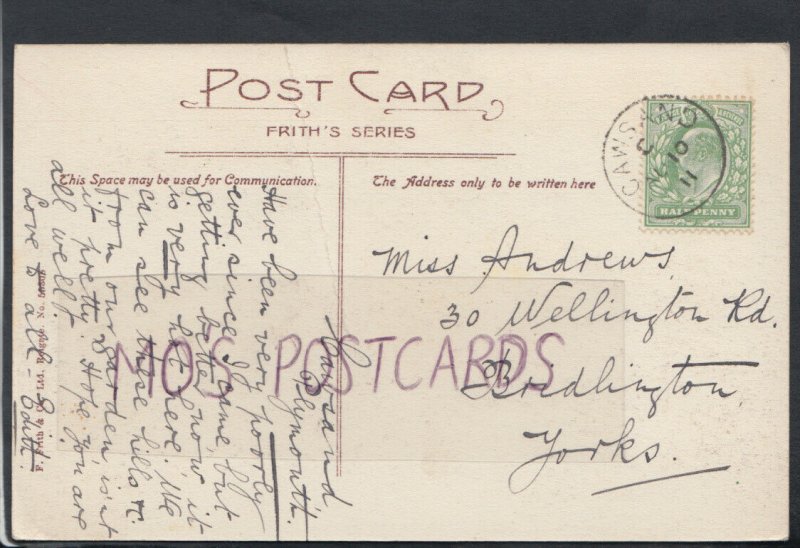 POST CARD
FRITH'S SERIES
This Space may be used for Communication.
The Address only to be written here
CAWSAND
3
10
11
HALFPENNY
Miss Andrews
30 Wellington Rd.
Bridlington
Yorks.
Cawsand
Plymouth.
Have been very poorly
ever since I came, but
getting better now it
is very hot here. We
can see these hills &c
from our garden isn't
it pretty. Hope you are
all well
Love to all - Edith.
F. Frith & Co., Ltd., Reigate. No.
MO'S POSTCARDS